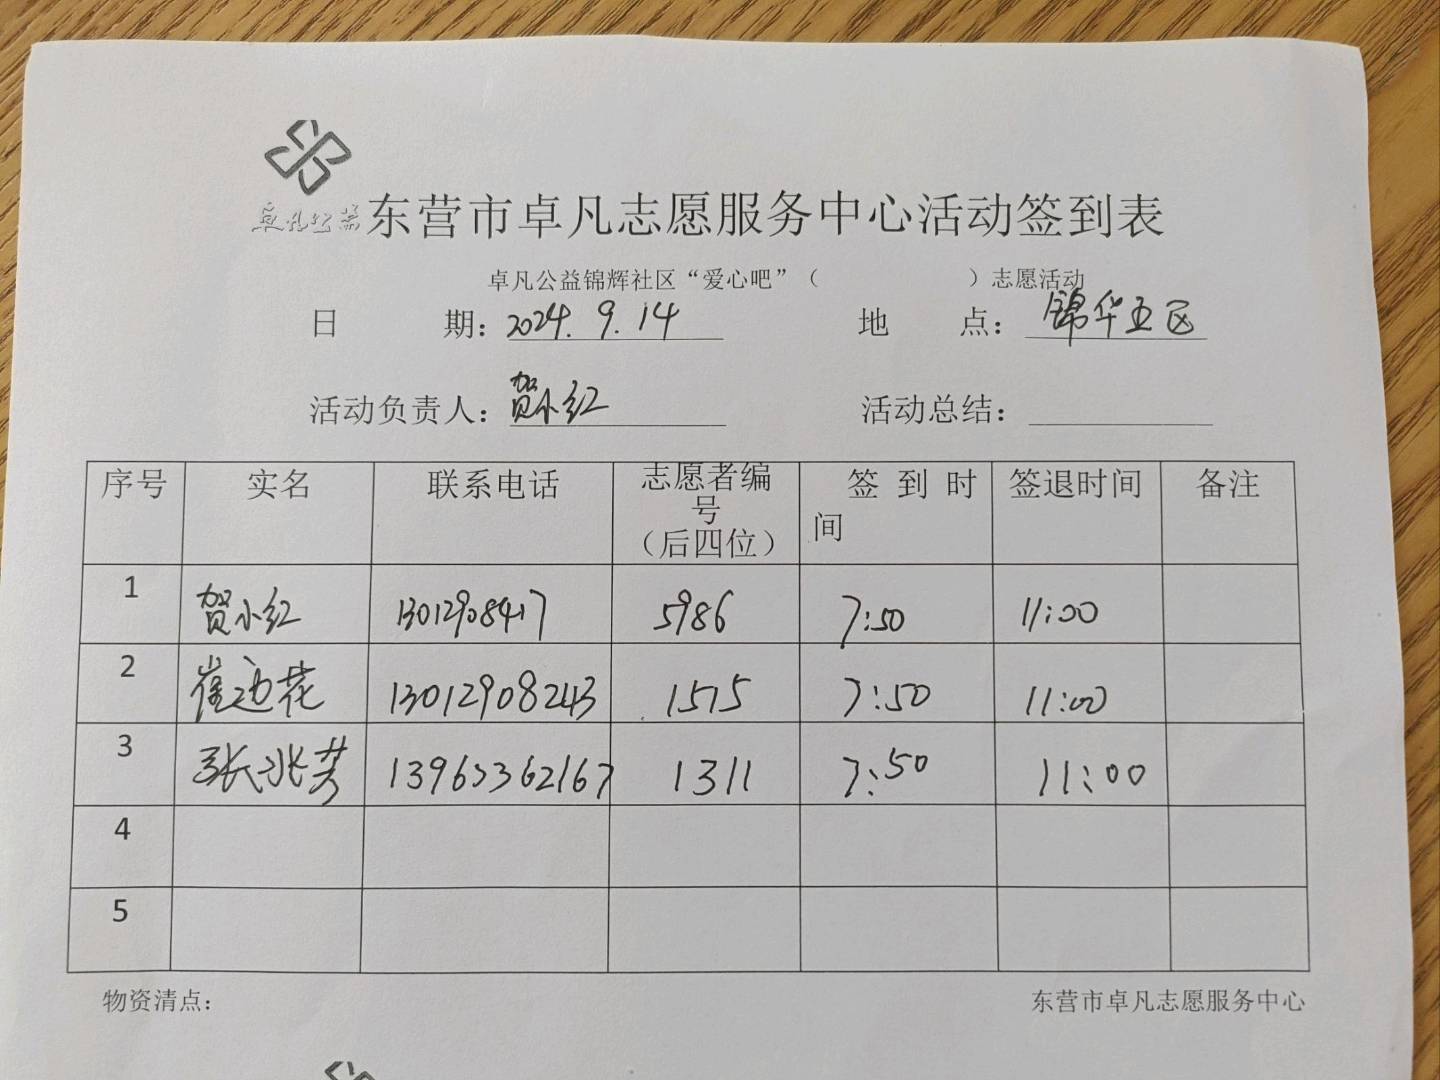 卓凡公益
东营市卓凡志愿服务中心活动签到表
卓凡公益锦辉社区“爱心吧”（ ）志愿活动
日 期：2024.9.14 地 点：锦华五区
活动负责人：贺小红 活动总结：
序号 实名 联系电话 志愿者编号（后四位） 签到时间 签退时间 备注
1 贺小红 13012908417 5986 7:50 11:00
2 崔迎花 13012908243 1515 7:50 11:00
3 张兆芳 13963362167 1311 7:50 11:00
4
5
物资清点： 东营市卓凡志愿服务中心